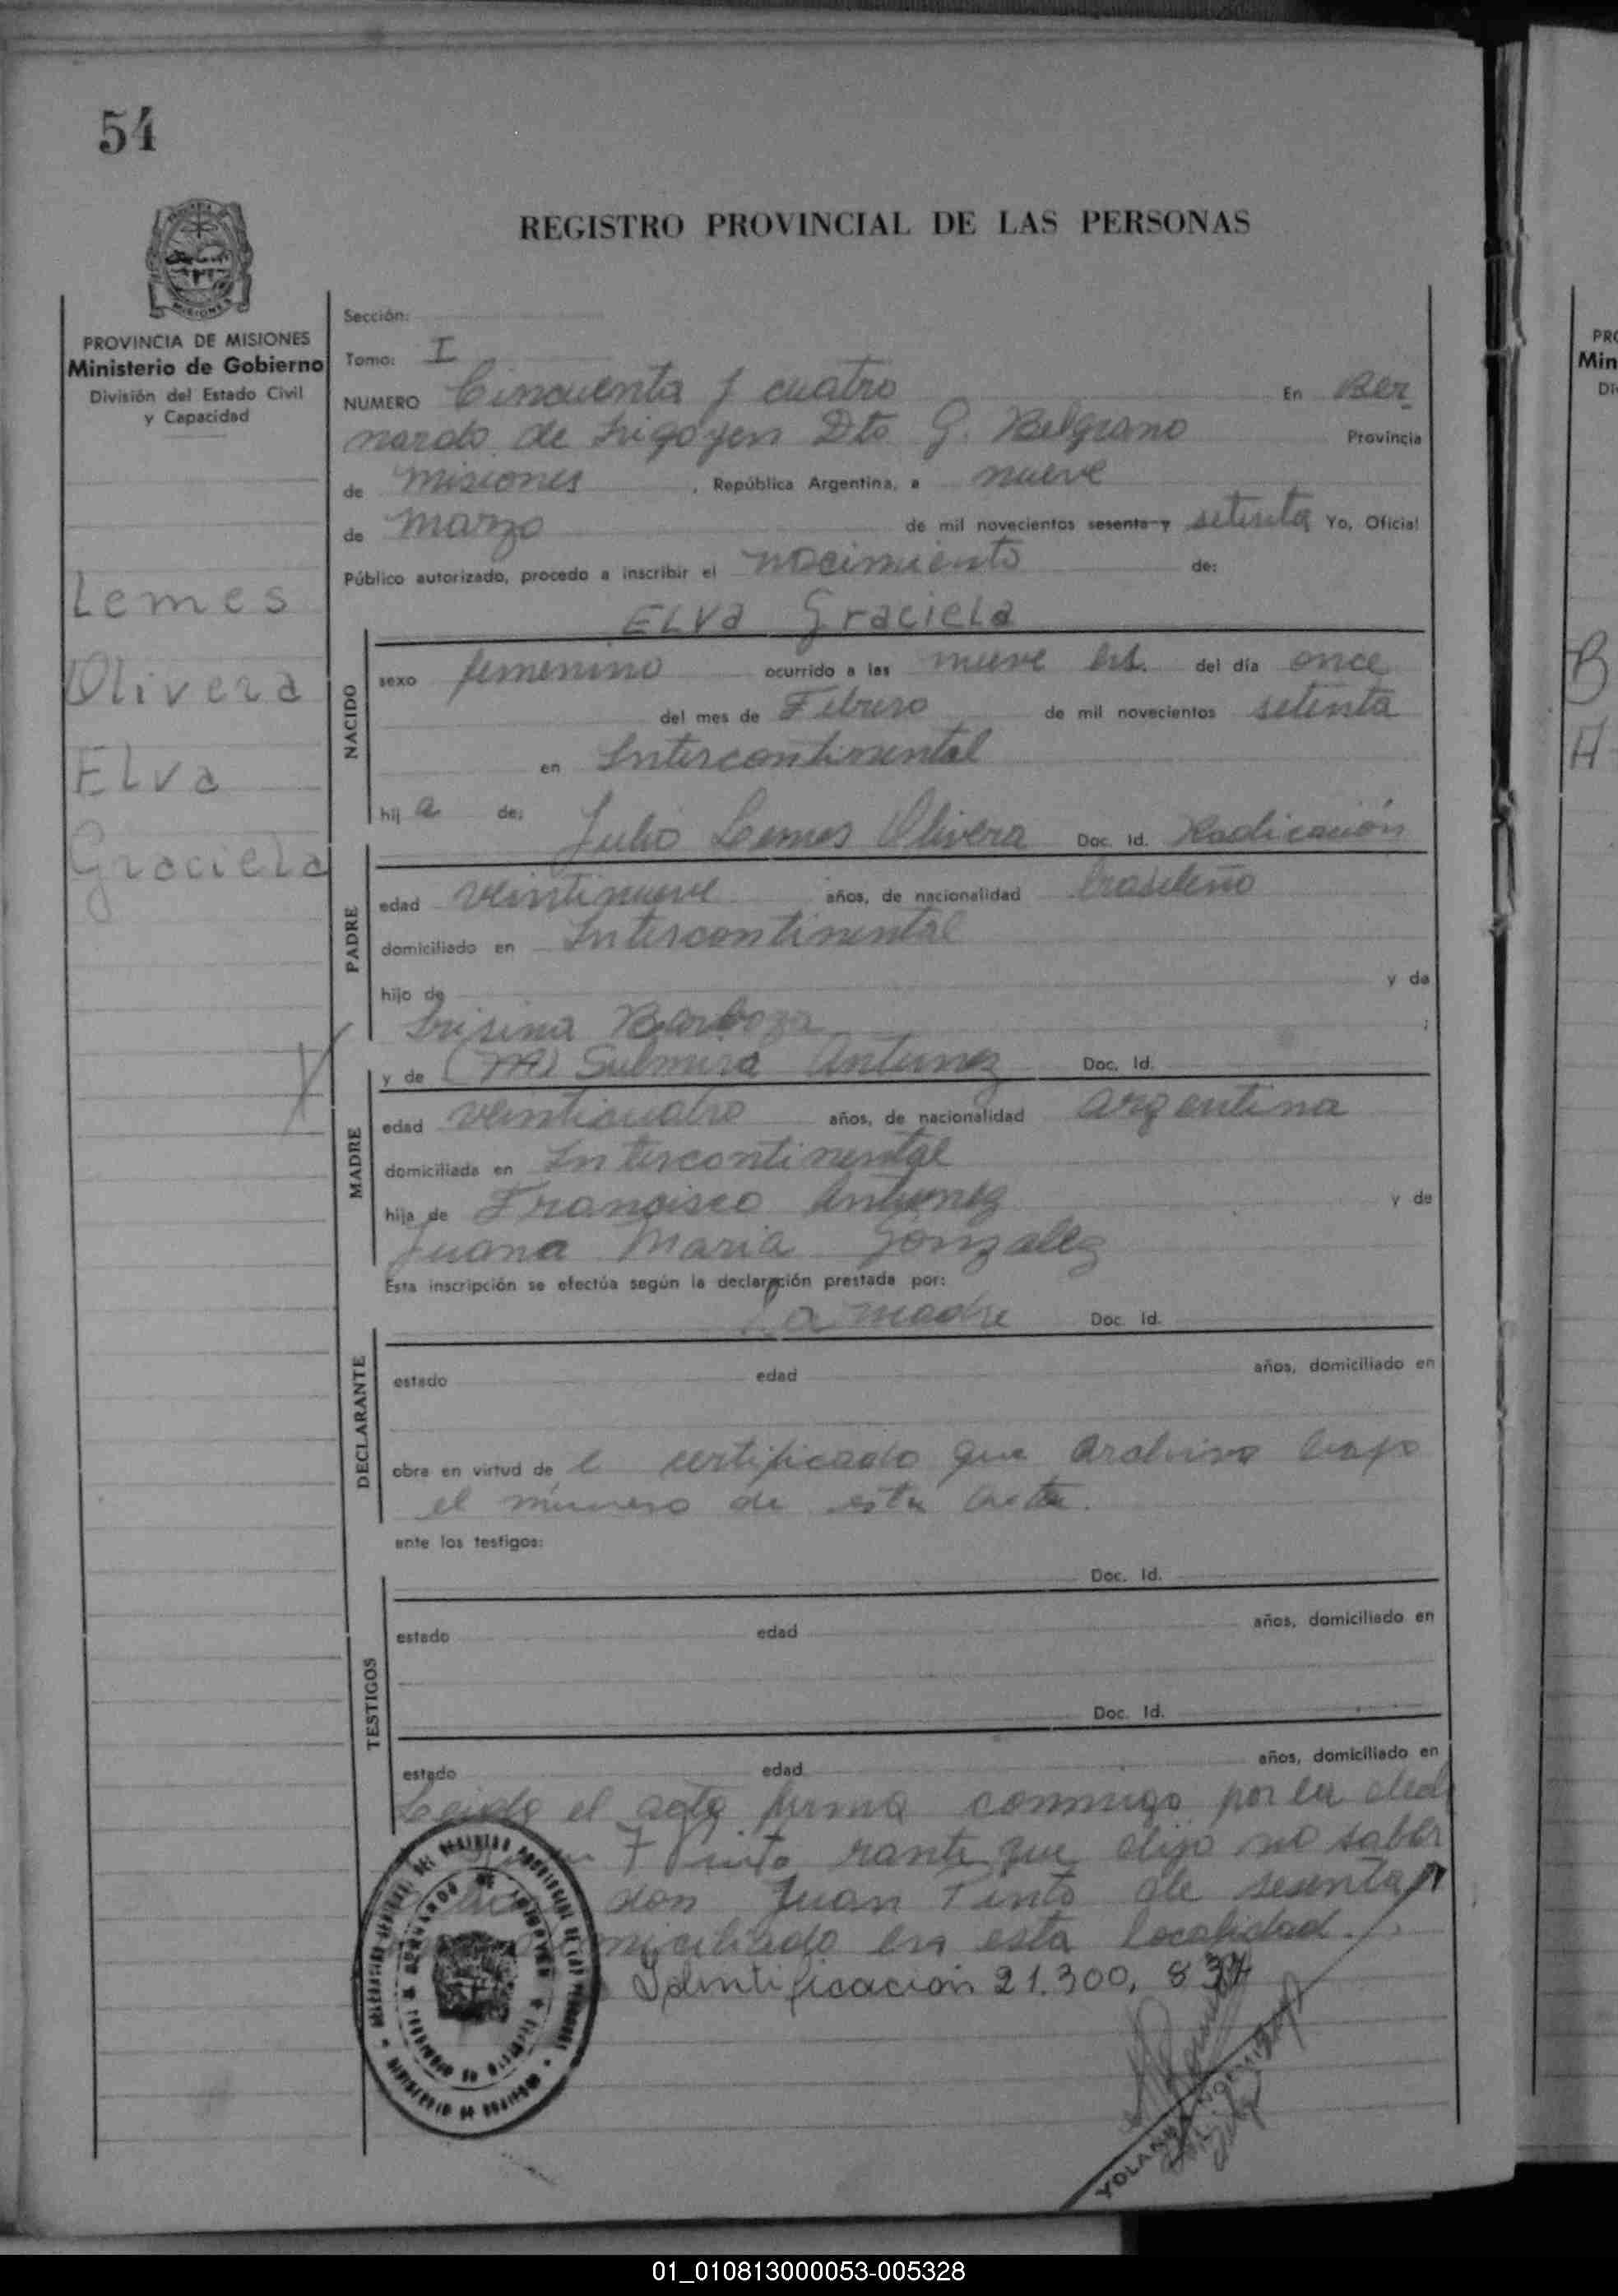 54
REGISTRO PROVINCIAL DE LAS PERSONAS
PROVINCIA DE MISIONES
Ministerio de Gobierno
División del Estado Civil
y Capacidad
Lemes
Olivera
Elva
Graciela
Sección:
Tomo: I
NUMERO Cincuenta y cuatro En Ber
nardo de Irigoyen Dto G. Belgrano Provincia
de Misiones, República Argentina, a nueve
de Marzo de mil novecientos sesenta y setenta Yo, Oficial
Público autorizado, procedo a inscribir el nacimiento de:
ELVA Graciela
NACIDO
sexo femenino ocurrido a las nueve hs. del día once
del mes de Febrero de mil novecientos setenta
en Intercontinental
hij a de: Julio Lemes Olivera Doc. Id. Radicación
PADRE
edad veintinueve años, de nacionalidad brasileño
domiciliado en Intercontinental
hijo de y de
Barboza ;
y de (M) Sulmira Antunez Doc. Id.
MADRE
edad veinticuatro años, de nacionalidad argentina
domiciliada en Intercontinental
hija de Francisco Antunez y de
Juana Maria Gonzalez
Esta inscripción se efectúa según la declaración prestada por:
La madre Doc. Id.
DECLARANTE
estado edad años, domiciliado en
obra en virtud de l certificado que archivo bajo
el número de esta acta.
ante los testigos:
Doc. Id.
TESTIGOS
estado edad años, domiciliado en
Doc. Id.
estado edad años, domiciliado en
Leida el acta firma conmigo por la decla
rante que dijo no saber
don Juan Pinto de sesenta
miciliado en esta localidad.
Identificación 21.300, 834
01_010813000053-005328
PRO
Min
Di
B
A